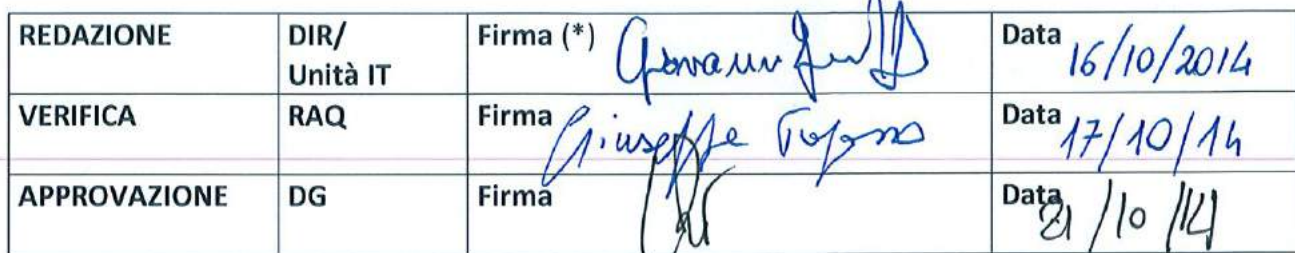 REDAZIONE DIR/ Firma (*) Giovanni Data 16/10/2014
Unità IT
VERIFICA RAQ Firma Giuseppe Data 17/10/14
APPROVAZIONE DG Firma Data 21/10/14